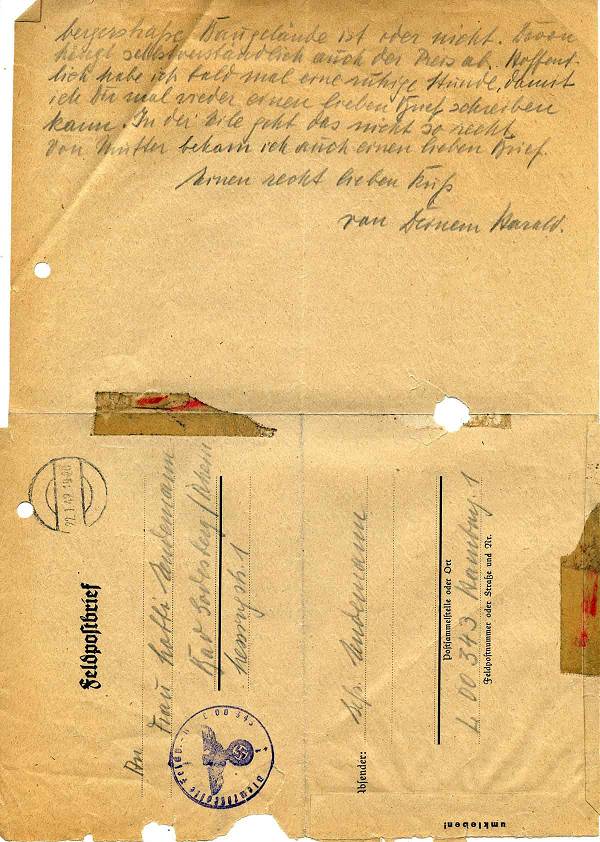 bergerstraße Baugelände ist oder nicht. Davon
hängt selbstverständlich auch der Preis ab. Hoffent-
lich habe ich bald mal eine ruhige Stunde, damit
ich Dir mal wieder einen lieben Brief schreiben
kann. In der Eile geht das nicht so recht.
Von Mutter bekam ich auch einen lieben Brief.
Einen recht lieben Kuß
von Deinem Harald.
Feldpostbrief
An Frau
Bad Godesberg/Rhein
Absender:
L 00 343
Postsammelstelle oder Ort
Feldpostnummer oder Straße und Nr.
umkleben!
Dienststelle Feldp. L 00 343